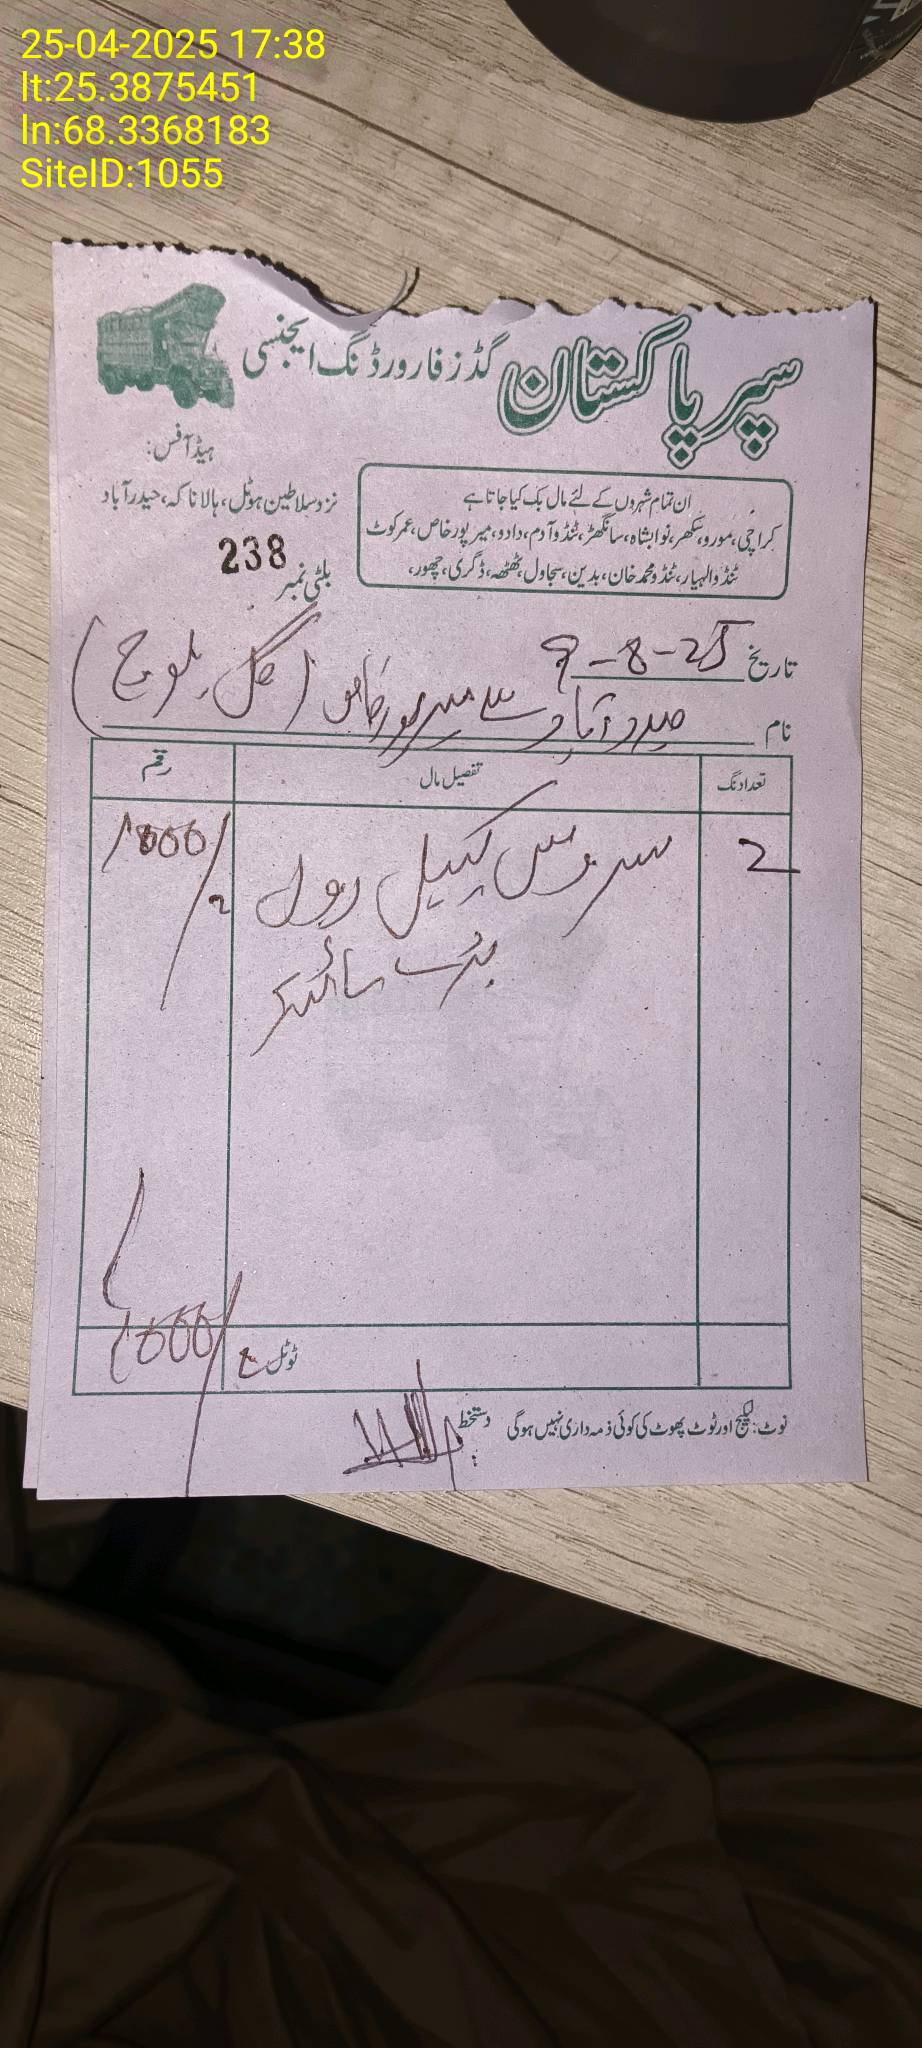 25-04-2025 17:38
lt:25.3875451
ln:68.3368183
SiteID:1055
سپر پاکستان گڈز فارورڈنگ ایجنسی
ہیڈ آفس:
نزد سلاطین ہوٹل، ہالا ناکہ، حیدرآباد
ان تمام شہروں کے لئے مال بک کیا جاتا ہے
کراچی، مورو، سکھر، نوابشاہ، سانگھڑ، ٹنڈو آدم، دادو، میرپور خاص، عمرکوٹ
ٹنڈوالہیار، ٹنڈو محمد خان، بدین، سجاول، ٹھٹھہ، ڈگری، چھور،
بلٹی نمبر 238
تاریخ 9-8-25
نام حیدرآباد سے میرپورخاص (گل بلوچ)
تعداد نگ تفصیل مال رقم
2 سروس کیبل رول 1000/
بڑے سائز
ٹوٹل 1000/
نوٹ: لیکیج اور ٹوٹ پھوٹ کی کوئی ذمہ داری نہیں ہوگی دستخط